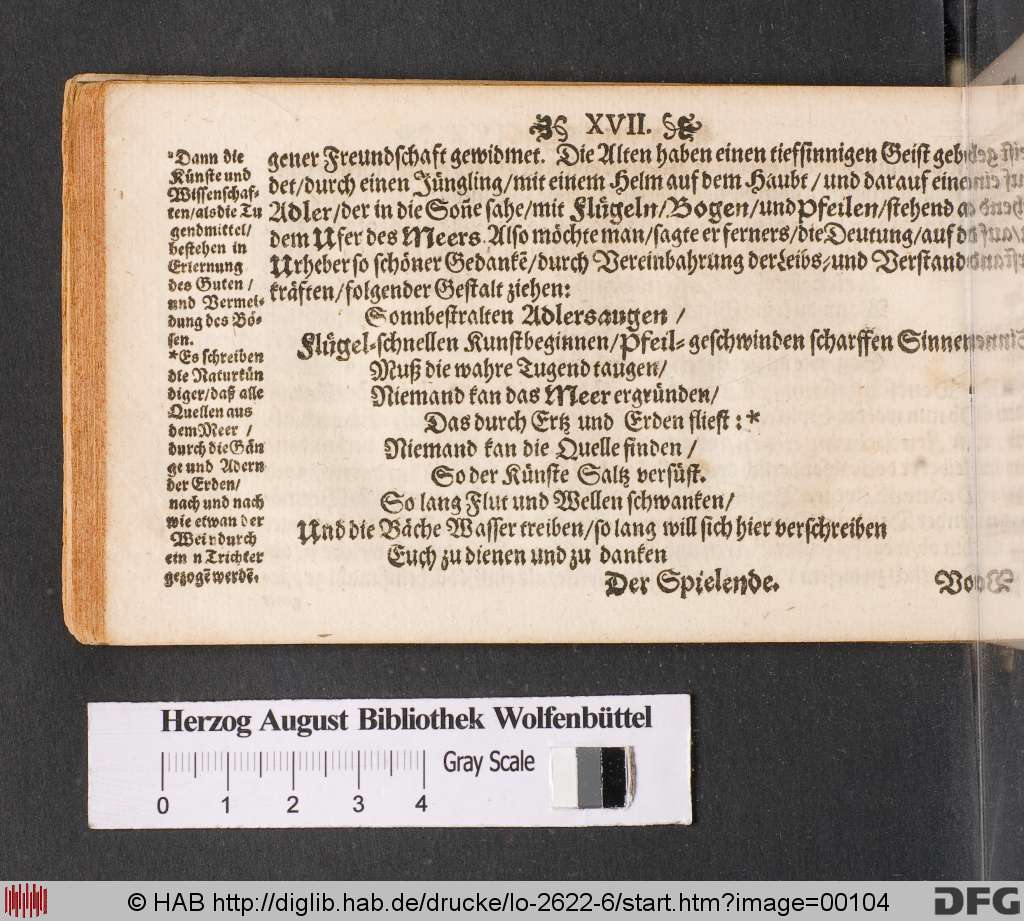 XVII.
gener Freundschaft gewidmet. Die Alten haben einen tiefsinnigen Geist gebil
det/durch einen Jüngling/mit einem Helm auf dem Haubt/und darauf einen
Adler/der in die Soñe sahe/mit Flügeln/Bogen/und Pfeilen/stehend a
dem Ufer des Meers. Also möchte man/sagte er ferners/die Deutung/auf d
Urheber so schöner Gedankẽ/durch Vereinbahrung der Leibs- und Verstand
kräften/folgender Gestalt ziehen:
Sonnbestralten Adlersaugen/
Flügel-schnellen Kunstbeginnen/Pfeil-geschwinden scharffen Sinnen
Muß die wahre Tugend taugen/
Niemand kan das Meer ergründen/
Das durch Ertz und Erden fliest:*
Niemand kan die Quelle finden/
So der Künste Saltz versüst.
So lang Flut und Wellen schwanken/
Und die Bäche Wasser treiben/so lang will sich hier verschreiben
Euch zu dienen und zu danken
Der Spielende.
*Dann die
Künste und
Wissenschaf-
ten/als die Tu
gendmittel/
bestehen in
Erlernung
des Guten/
und Vermei-
dung des Bö-
sen.
*Es schreiben
die Naturkün
diger/daß alle
Quellen aus
dem Meer/
durch die Gän
ge und Adern
der Erden/
nach und nach
wie etwan der
Wein durch
einen Trichter
gezogẽ werdẽ.
Herzog August Bibliothek Wolfenbüttel
Gray Scale
0 1 2 3 4
© HAB http://diglib.hab.de/drucke/lo-2622-6/start.htm?image=00104
DFG